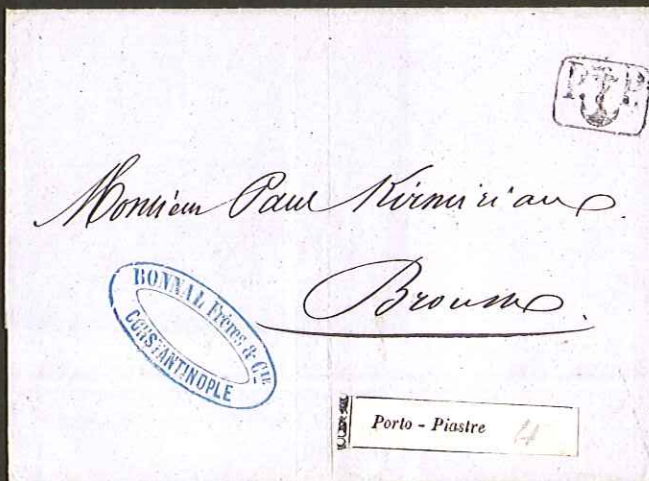 P. P.
Monsieur Paul Kirmizian
Brousse.
BONNAL Frères & Cie
CONSTANTINOPLE
Porto - Piastre